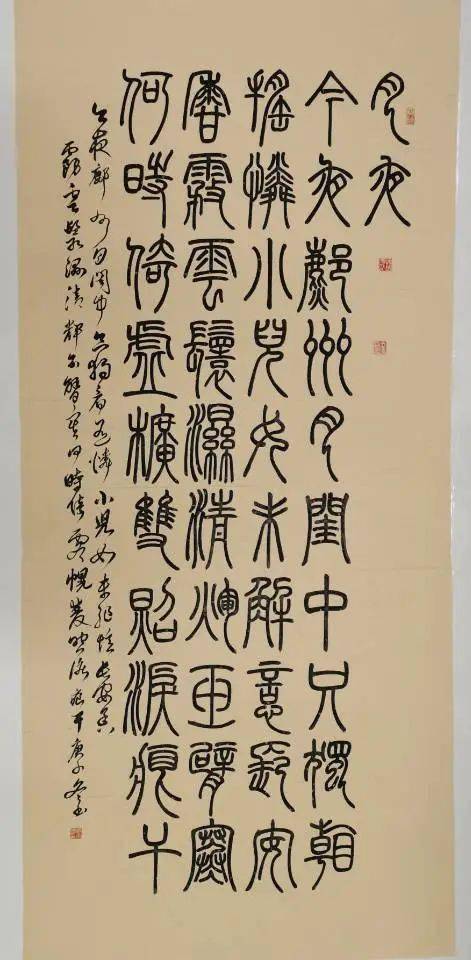 月夜
今夜鄜州月閨中只獨看
遙憐小兒女未解憶長安
香霧雲鬟濕清輝玉臂寒
何時倚虛幌雙照淚痕干
今夜鄜州月閨中只獨看遙憐小兒女未解憶長安香
霧雲鬟濕清輝玉臂寒何時倚虛幌雙照淚痕干庚子冬